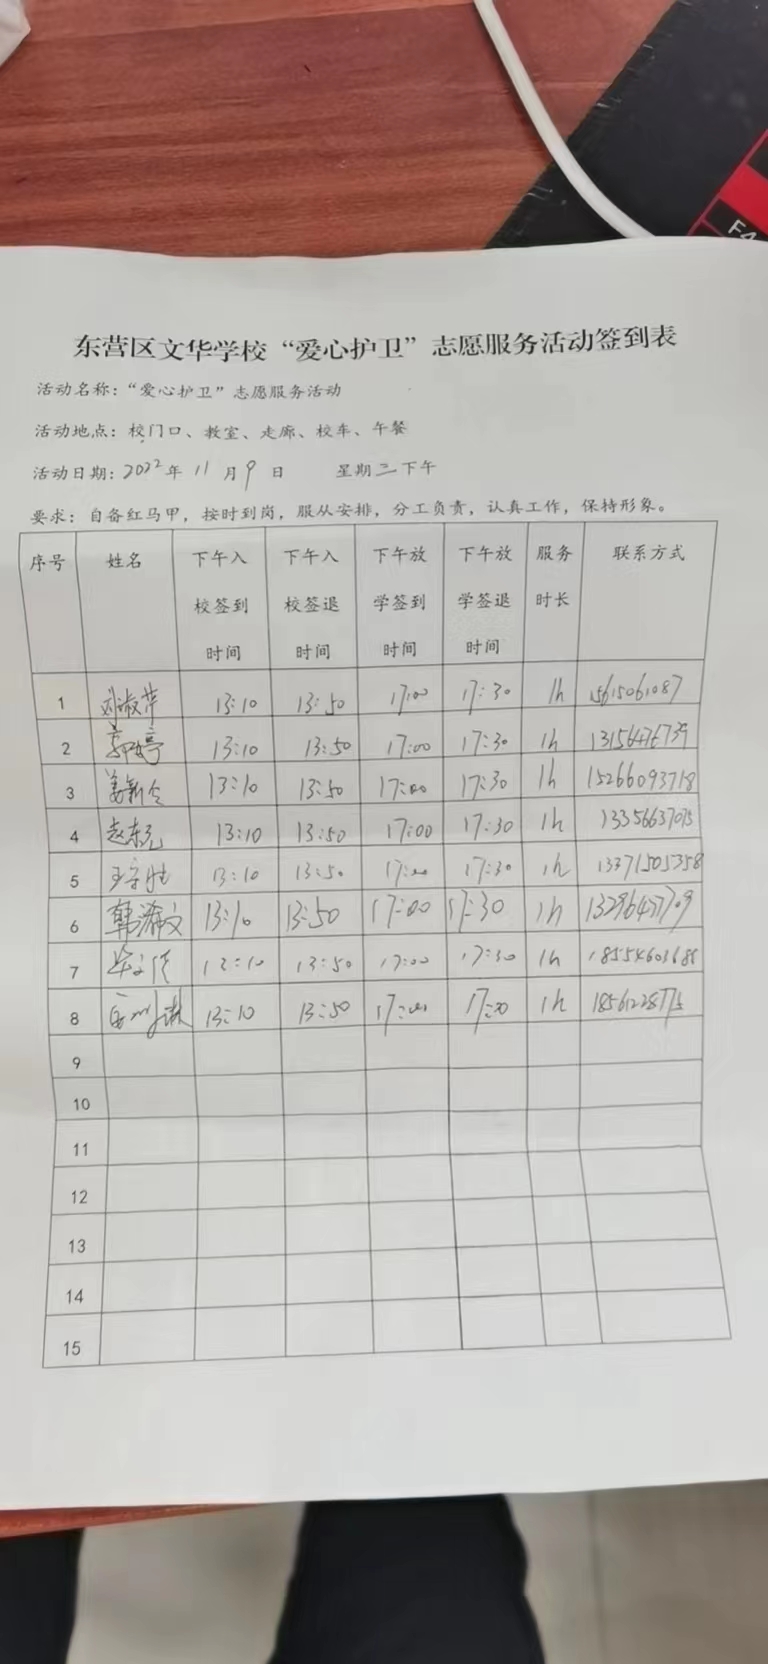 F4
东营区文华学校“爱心护卫”志愿服务活动签到表
活动名称：“爱心护卫”志愿服务活动
活动地点：校门口、教室、走廊、校车、午餐
活动日期：2022年 11月9日 星期三下午
要求：自备红马甲，按时到岗，服从安排，分工负责，认真工作，保持形象。
序号 姓名 下午入校签到时间 下午入校签退时间 下午放学签到时间 下午放学签退时间 服务时长 联系方式
1 刘淑萍 13:10 13:50 17:00 17:30 1h 15615061087
2 郭婷 13:10 13:50 17:00 17:30 1h 13156476739
3 13:10 13:50 17:00 17:30 1h 15266093718
4 赵东元 13:10 13:50 17:00 17:30 1h
5 13:10 13:50 17:00 17:30 1h 13371505358
6 韩潇文 13:10 13:50 17:00 17:30 1h
7 13:10 13:50 17:00 17:30 1h
8 13:10 13:50 17:00 17:30 1h
9
10
11
12
13
14
15